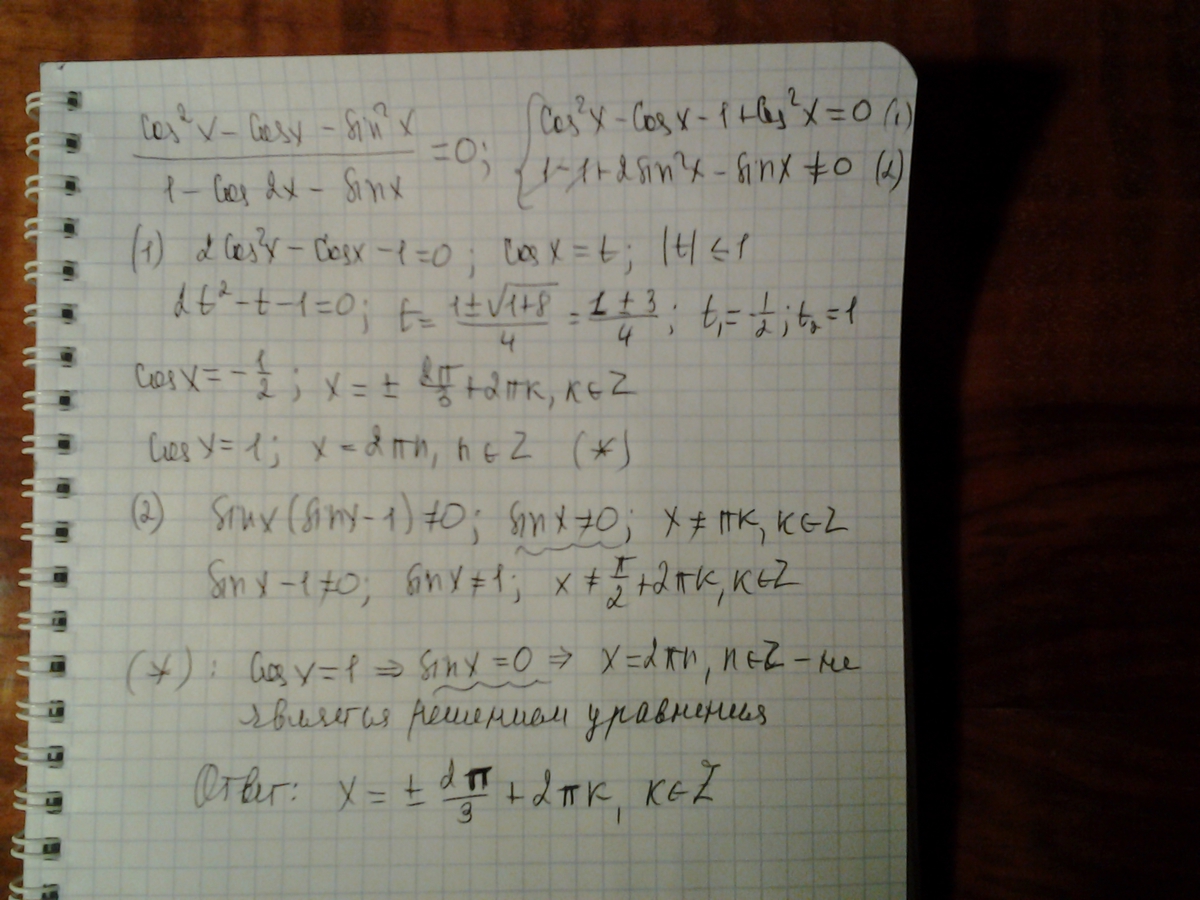 (cos²x - cosx - sin²x)/(1 - cos 2x - sinx) = 0; { cos²x - cosx - 1 + cos²x = 0 (1)
1 - 1 + 2sin²x - sinx ≠ 0 (2)
(1) 2cos²x - cosx - 1 = 0; cosx = t; |t| ≤ 1
2t² - t - 1 = 0; t = (1 ± √(1+8))/4 = (1 ± 3)/4; t₁ = -1/2; t₂ = 1
cosx = -1/2; x = ± 2π/3 + 2πk, k∈Z
cosx = 1; x = 2πn, n∈Z (*)
(2) sinx(sinx - 1) ≠ 0; sinx ≠ 0; x ≠ πk, k∈Z
sinx - 1 ≠ 0; sinx ≠ 1; x ≠ π/2 + 2πk, k∈Z
(*): cosx = 1 ⇒ sinx = 0 ⇒ x = 2πn, n∈Z - не
является решением уравнения
Ответ: x = ± 2π/3 + 2πk, k∈Z